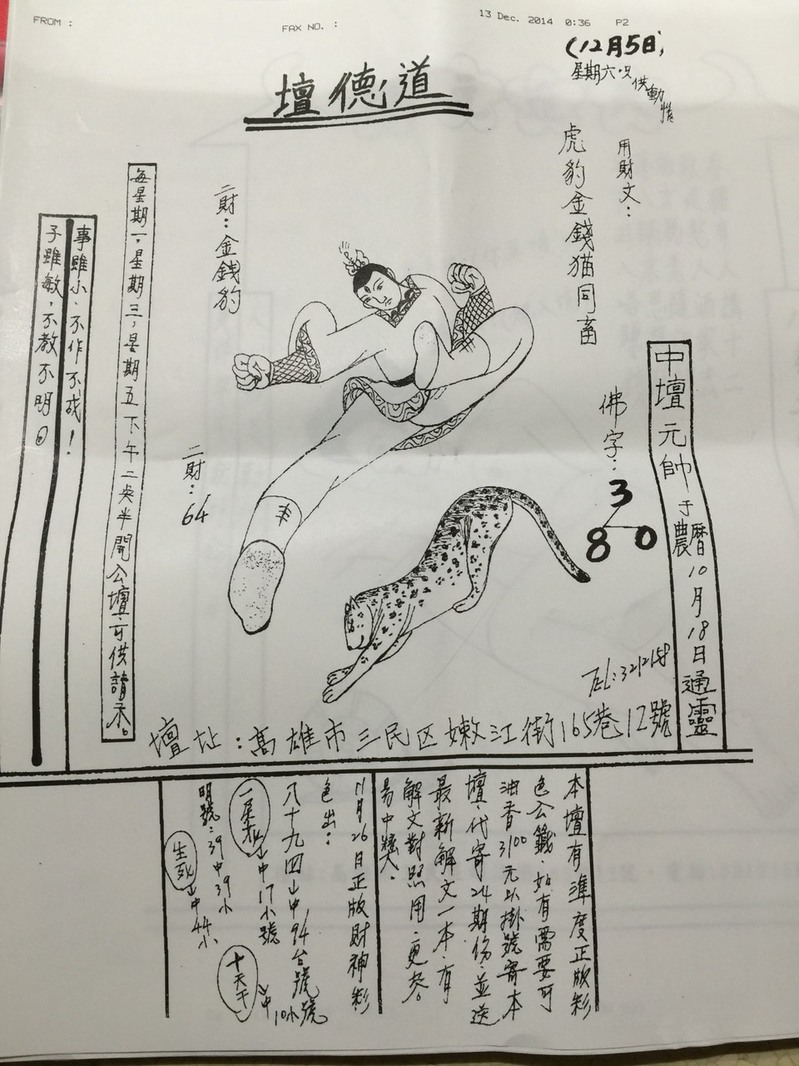 FROM :
FAX NO. :
13 Dec. 2014 0:36 P2
(12月5日,
星期六.只供動惰
壇德道
用財文：
虎豹金錢猫同畜
佛字：
3
8 0
中壇元帥于農曆10月18日通靈
二財：金錢豹
二財：64
每星期一,星期三,星期五下午二点半開公壇,可供請示。
事雖小、不作不成！
子雖敏,不教不明。
TEL:3212158
壇址：高雄市三民区嫩江街165巷12號
本壇有準度正版彩
色公籤.如有需要可
油香3100元以掛號寄本
壇.代寄24期份.並送
最新解文一本.有
解文對照用.更容
易中獎.
11月26日正版財神彩
色出：
八十九四山中94台號
一星板 山中17小號
明號：39中39小
生死 山中44小
十天干 中10小號